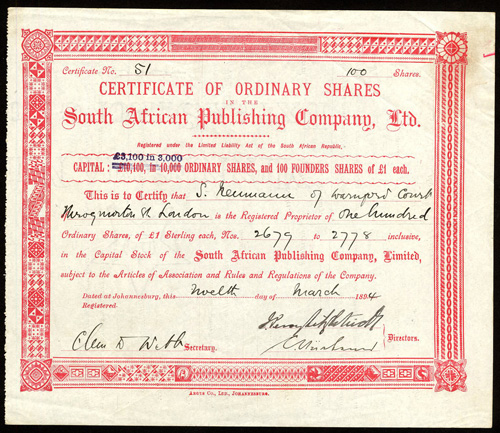 Certificate No. 51 100 Shares.
CERTIFICATE OF ORDINARY SHARES
IN THE
South African Publishing Company, Ltd.
Registered under the Limited Liability Act of the South African Republic.
£3,100 in 3,000
CAPITAL: £10,100, in 10,000 ORDINARY SHARES, and 100 FOUNDERS SHARES of £1 each.
This is to Certify that S. Neumann of Warnford Court
Throgmorton St London is the Registered Proprietor of One hundred
Ordinary Shares, of £1 Sterling each, Nos. 2679 to 2778 inclusive,
in the Capital Stock of the South African Publishing Company, Limited,
subject to the Articles of Association and Rules and Regulations of the Company.
Dated at Johannesburg, this twelfth day of March 1894
Registered.
Directors.
Webb Secretary.
Argus Co., Ltd., Johannesburg.